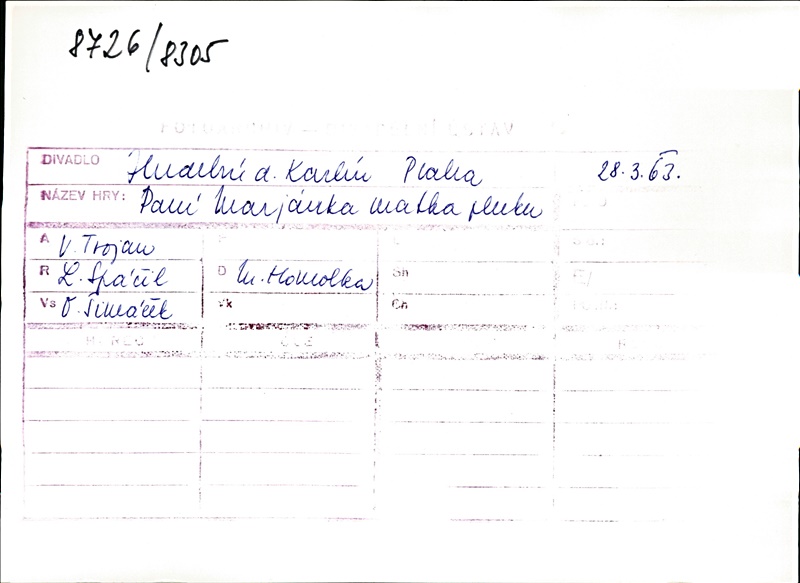 8726/8305
DIVADLO Hudební d. Karlín Praha 28.3.63.
NÁZEV HRY: Paní Marjánka matka pluku
A V. Trojan
R L. Spáčil D M. Homolka Sh
Vs O. Šimáček Vk Ch